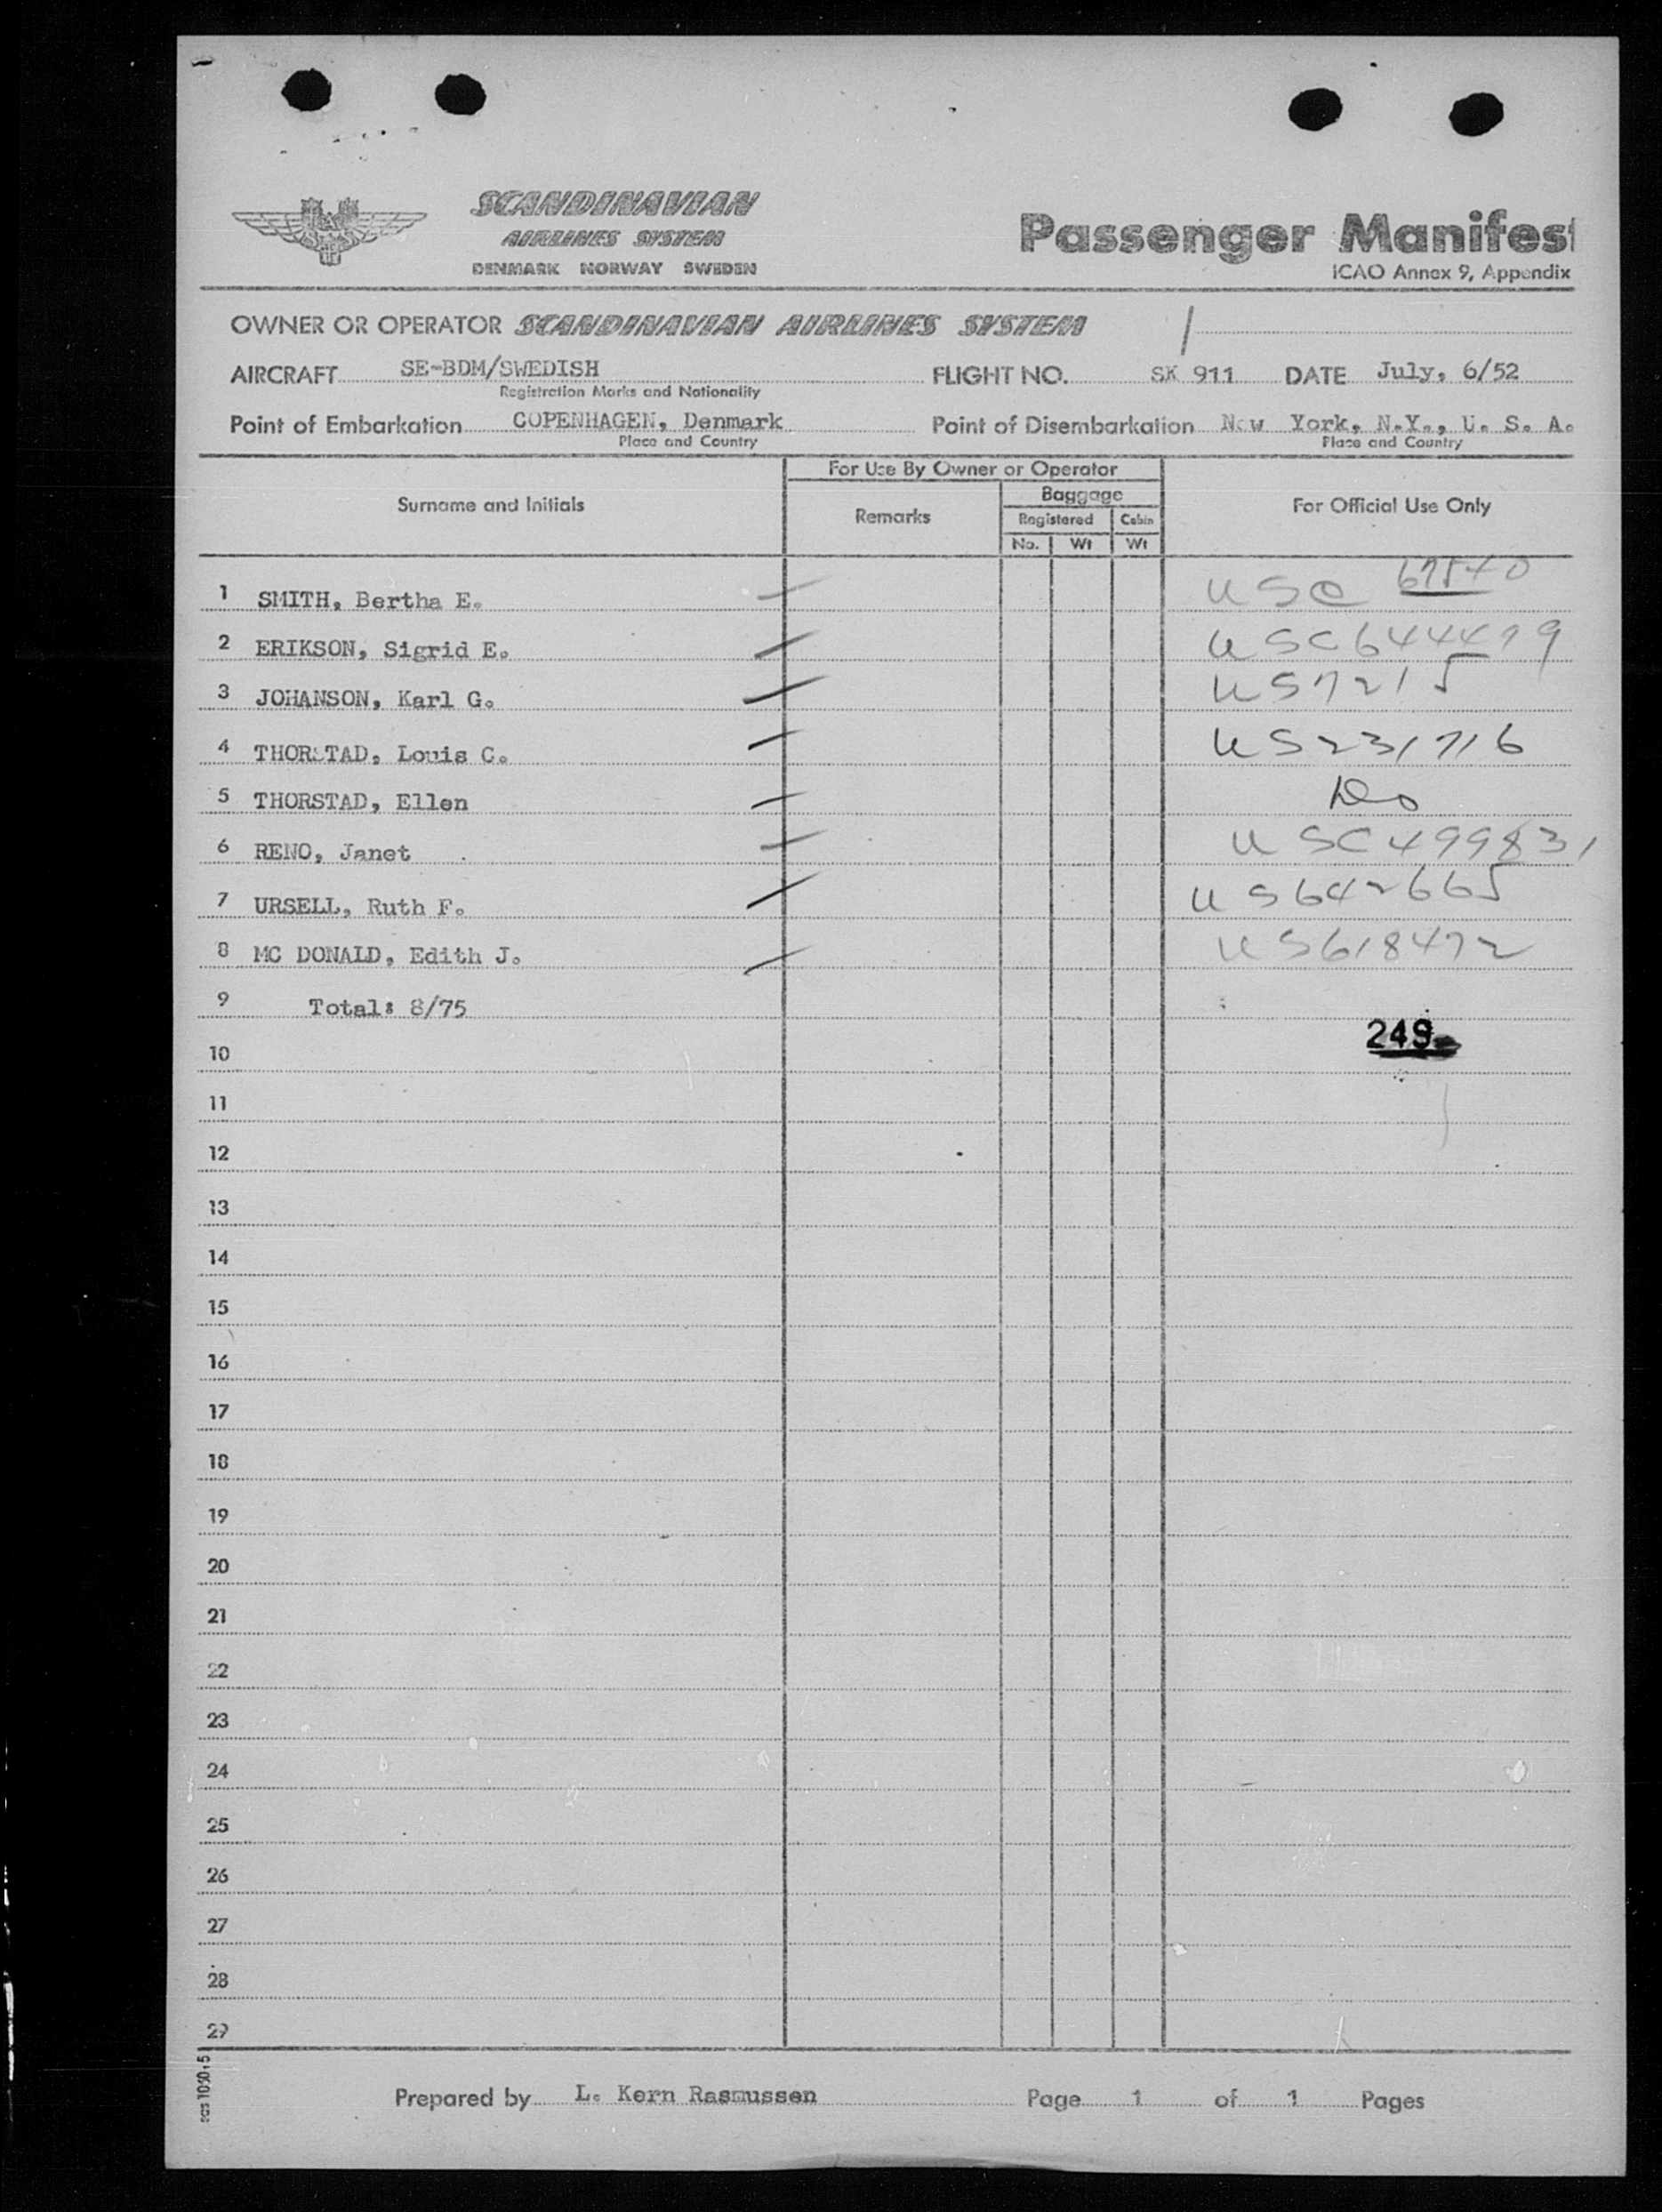 SCANDINAVIAN
AIRLINES SYSTEM
DENMARK NORWAY SWEDEN
Passenger Manifest
ICAO Annex 9, Appendix
OWNER OR OPERATOR SCANDINAVIAN AIRLINES SYSTEM
AIRCRAFT SE-BDM/SWEDISH FLIGHT NO. SK 911 DATE July, 6/52
Registration Marks and Nationality
Point of Embarkation COPENHAGEN, Denmark Point of Disembarkation New York, N.Y., U. S. A.
Place and Country Place and Country
For Use By Owner or Operator
Surname and Initials Remarks Baggage For Official Use Only
Registered Cabin
No. Wt Wt
1 SMITH, Bertha E. USC
2 ERIKSON, Sigrid E.
3 JOHANSON, Karl G. US7215
4 THORSTAD, Louis C. US231716
5 THORSTAD, Ellen Do
6 RENO, Janet USC499831
7 URSELL, Ruth F. US642665
8 MC DONALD, Edith J. US618472
9 Total: 8/75
249
10
11
12
13
14
15
16
17
18
19
20
21
22
23
24
25
26
27
28
29
Prepared by L. Kern Rasmussen Page 1 of 1 Pages